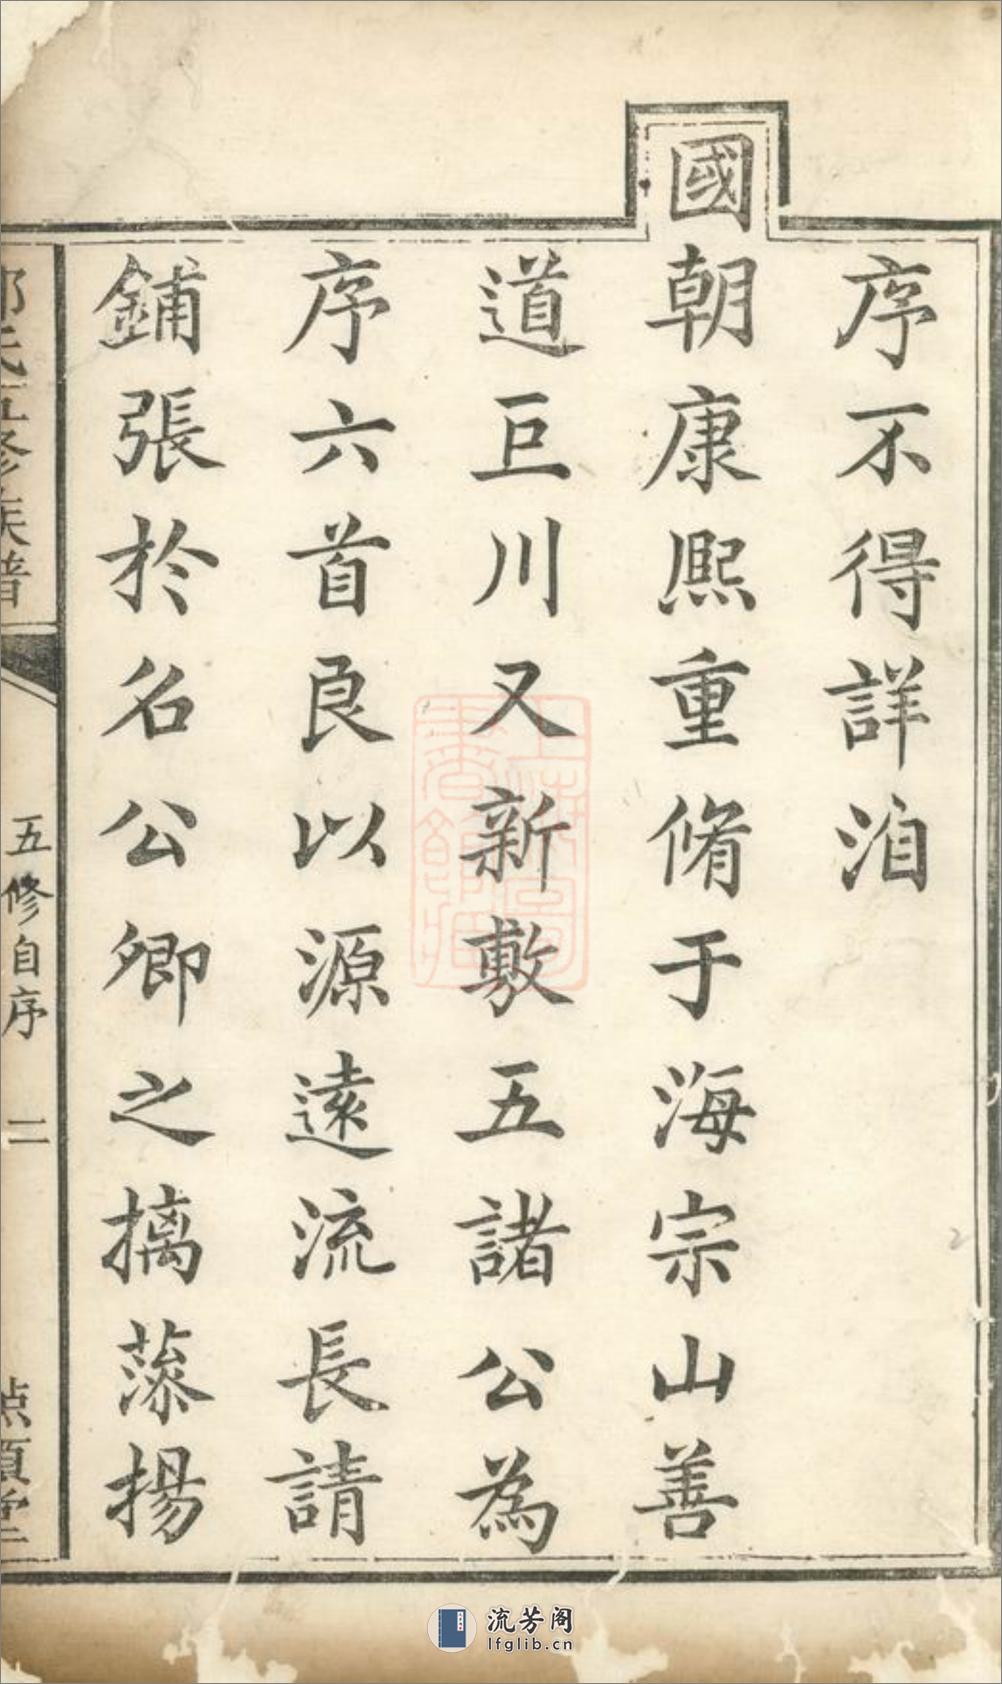 序不得詳洎
國朝康熙重脩于海宗山善
道巨川又新敷五諸公為
序六首良以源遠流長請
鋪張於名公卿之摛藻揚
氏五修族譜
五修自序 二
點頭堂
流芳阁
lfglib.cn